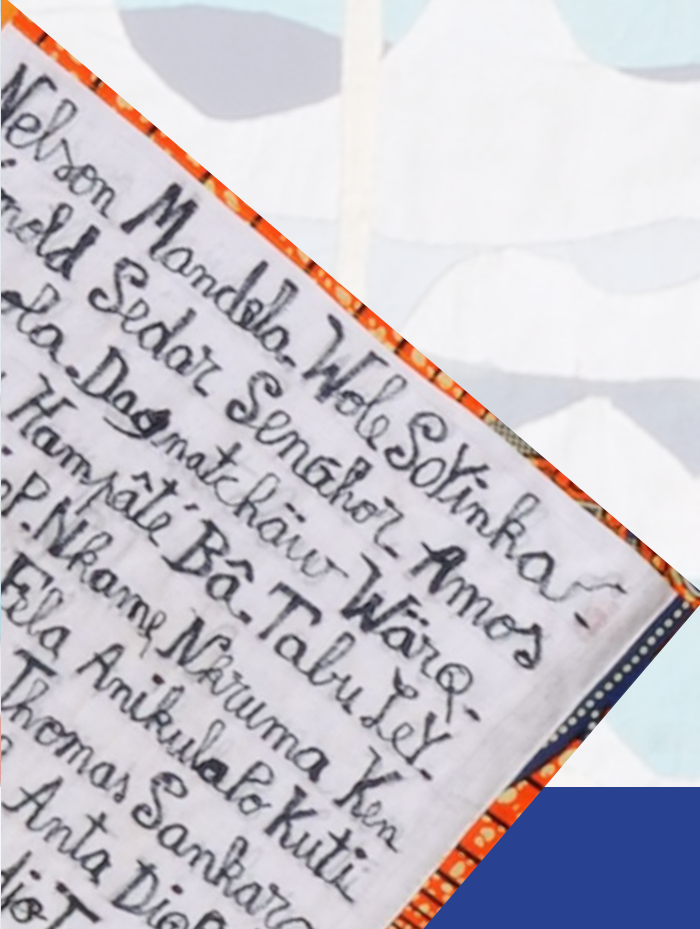 Nelson Mandela. Wole SoYinka-
nold Sedar Senghor. Amos
ola. Dagnatchäw Wärq-
Hampâté Bâ. Tabu LeY-
P. Nkame Nkruma Ken
Fela Anikulapo Kuti
Thomas Sankara
Anta Diop
djo T